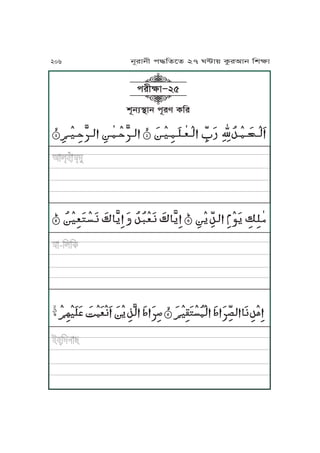 ২০৬ নূরানী পদ্ধতিতে ২৭ ঘন্টায় কুরআন শিক্ষা
পরীক্ষা-২৫
শূন্যস্থান পূরণ করি
اَلْحَمْدُ لِلّٰهِ رَبِّ الْعٰلَمِيْنَ ۝ الرَّحْمٰنِ الرَّحِيْمِ ۝
مٰلِكِ يَوْمِ الدِّيْنِ ۝ اِيَّاكَ نَعْبُدُ وَ اِيَّاكَ نَسْتَعِيْنُ ۝
মা-লিকি
اِهْدِنَا الصِّرَاطَ الْمُسْتَقِيْمَ ۝ صِرَاطَ الَّذِيْنَ اَنْعَمْتَ عَلَيْهِمْ
ইহ্‌দিনাছ্‌